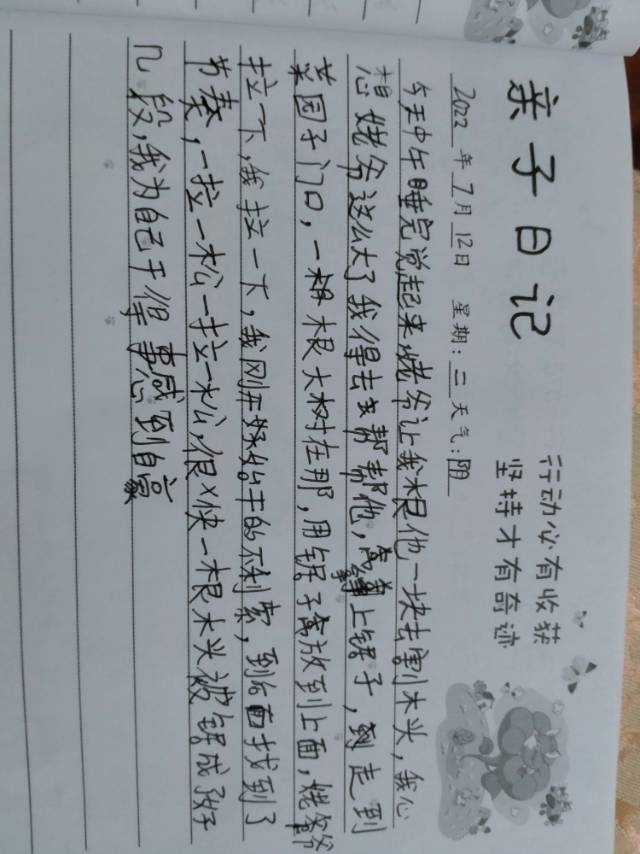 亲子日记
行动必有收获
坚持才有奇迹
2022年7月12日 星期:二 天气:阴
今天中午睡完觉起来,姥爷让我跟他一块去割木头,我心
想姥爷这么大了我得去帮帮他,拿上锯子,走到
菜园子门口,一根大树在那,用锯子拿放到上面,姥爷
拉一下,我拉一下,我刚开始干的不利索,到后面找到了
节奏,一拉一松一拉一松,很快一根木头被锯成了好
几段,我为自己干得事感到自豪